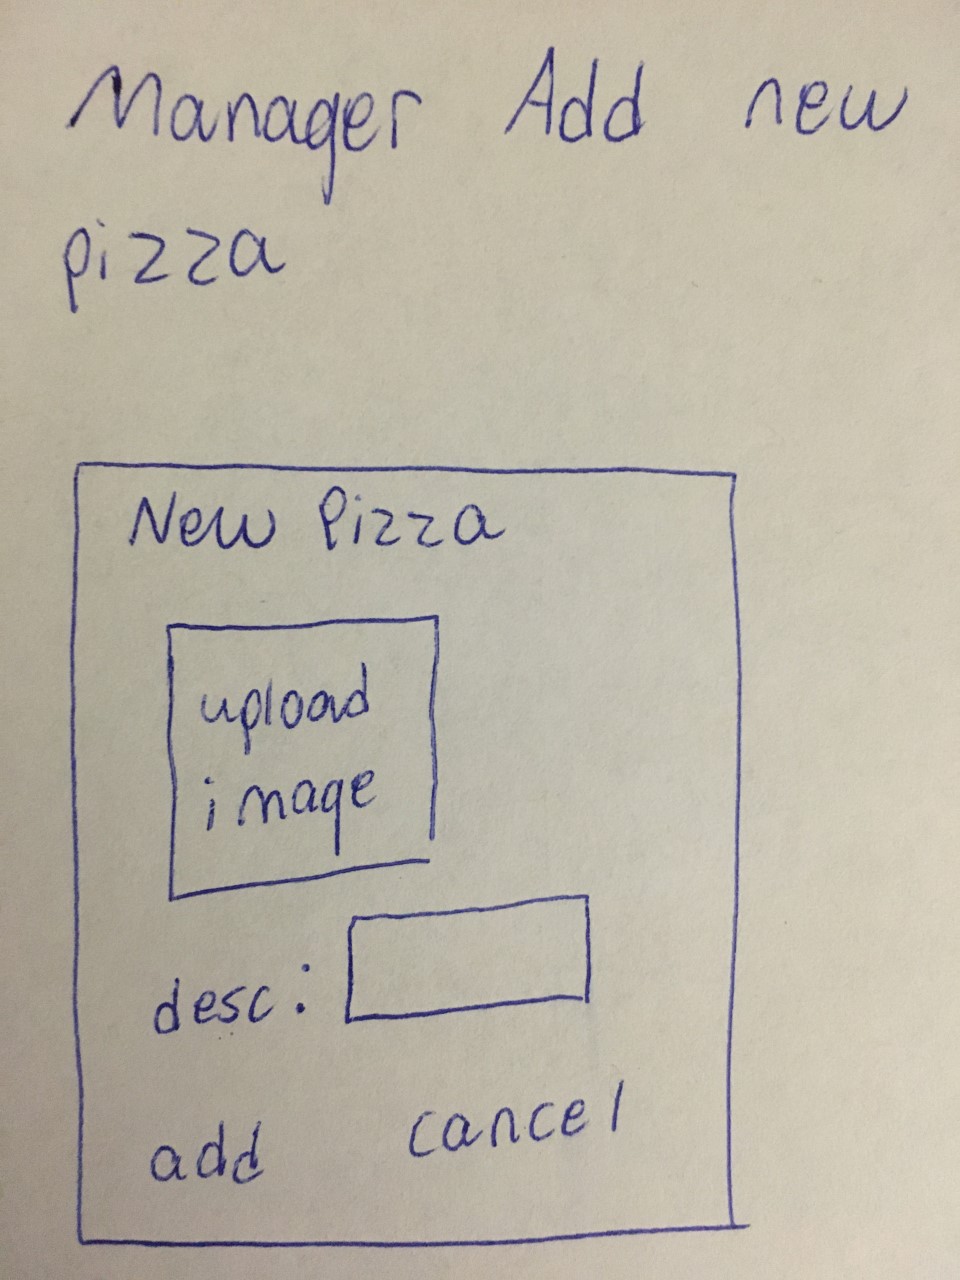 Manager Add new
pizza
New Pizza
upload
image
desc:
add cancel